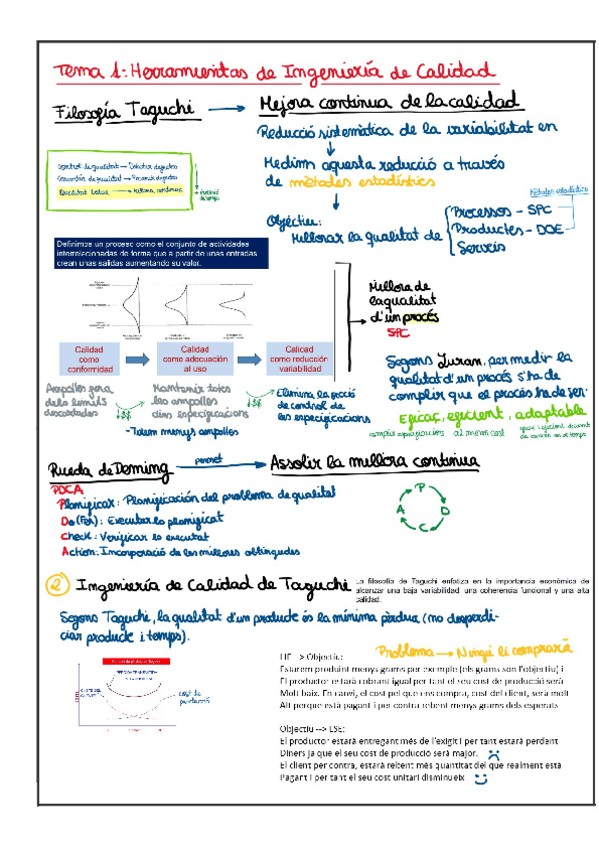 Tema 1: Herramientas de Ingeniería de Calidad
Filosofía Taguchi → Mejora continua de la calidad
Reducció sistemàtica de la variabilitat en
Medim aquesta reducció a través
de mètodes estadístics
Objectiu:
Millorar la qualitat de
Processos - SPC
Productes - DOE
Serveis
Mètodes estadístics
Control de qualitat → Detectar defectes
→ Prevenir defectes
Qualitat total → Millora contínua
Definimos un proceso como el conjunto de actividades
interrelacionadas de forma que a partir de unas entradas
crean unas salidas aumentando su valor.
Calidad
como
conformidad
Calidad
como adecuación
al uso
Calidad
como reducción
variabilidad
Millora de
la qualitat
d'un procés
SPC
Ampolles fora
dels límits
descartades
Mantenir totes
les ampolles
dins especificacions
- Tirem menys ampolles
Elimina la acció
de control de
les especificacions
Segons Juran, per medir la
qualitat d'un procés s'ha de
complir que el procés ha de ser:
Eficaç, eficient, adaptable
complir especificacions
al menor cost
Rueda de Deming permet → Assolir la millora contínua
PDCA
Planificar: Planificación del problema de qualitat
Do (Fer): Executar lo planificat
Check: Verificar lo executat
Action: Incorporació de les millores obtingudes
P
A D
C
2 Ingeniería de Calidad de Taguchi
La filosofía de Taguchi enfatiza en la importancia económica de
alcanzar una baja variabilidad, una coherencia funcional y una alta
calidad.
Segons Taguchi, la qualitat d'un producte és la mínima pèrdua (no desperdi-
ciar producte i temps).
Problema → Ningú li comprarà
cost de
producció
LIE --> Objectiu:
Estarem produint menys grams per exemple (els grams són l'objectiu) i
El productor estarà cobrant igual per tant el seu cost de producció serà
Molt baix. En canvi, el cost pel que ens compra, cost del client, serà molt
Alt perquè està pagant i per contra rebent menys grams dels esperats
Objectiu --> LSE:
El productor estarà entregant més de l'exigit i per tant estarà perdent
Diners ja que el seu cost de producció serà major.
El client per contra, estarà rebent més quantitat del que realment està
Pagant i per tant el seu cost unitari disminueix